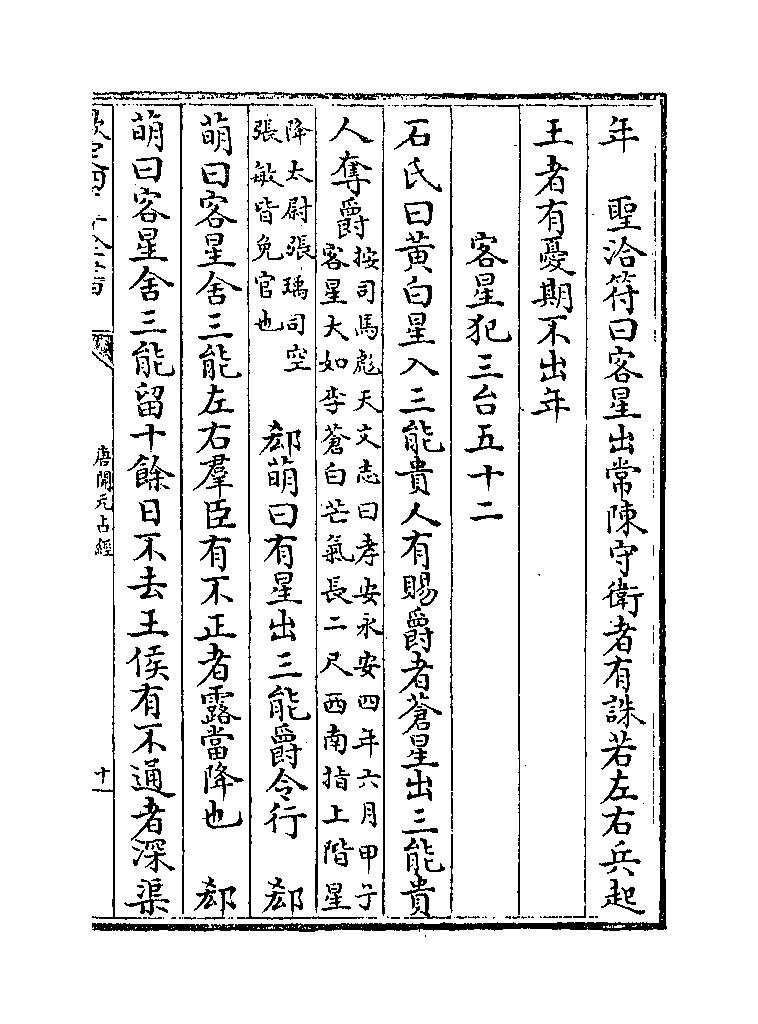 年　聖洽符曰客星出常陳守衛者有誅若左右兵起
王者有憂期不出年
客星犯三台五十二
石氏曰黃白星入三能貴人有賜爵者蒼星出三能貴
人奪爵
按司馬彪天文志曰孝安永安四年六月甲子
客星大如李蒼白芒氣長二尺西南指上階星
降太尉張瑀司空
張敏皆免官也
郄萌曰有星出三能爵令行　郄
萌曰客星舍三能左右羣臣有不正者露當降也　郄
萌曰客星舍三能留十餘日不去王侯有不通者深渠
唐開元占經
十一